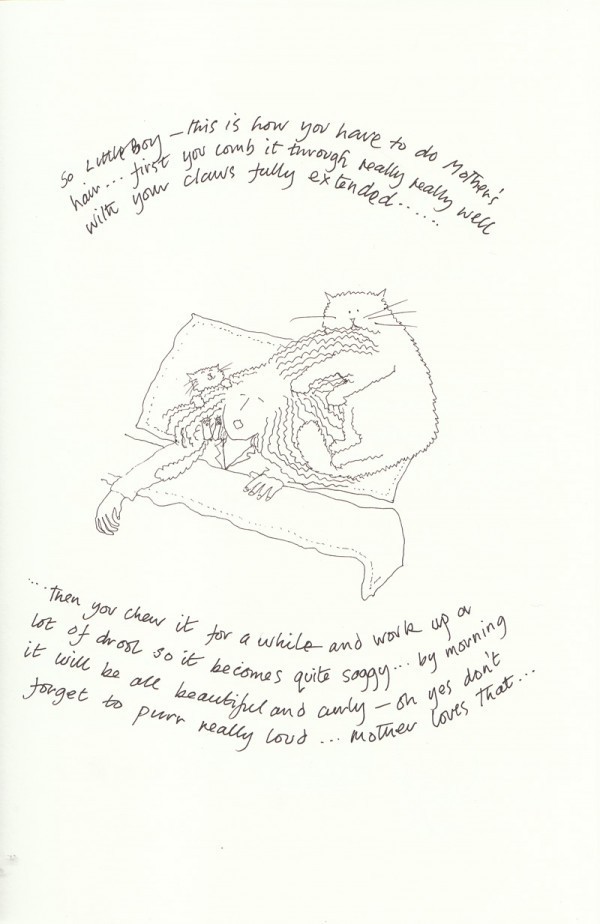 So Little Boy – this is how you have to do Mother's
hair... first you comb it through really really well
with your claws fully extended......
....Then you chew it for a while and work up a
lot of drool so it becomes quite soggy... by morning
it will be all beautiful and curly – oh yes don't
forget to purr really loud... Mother loves that...